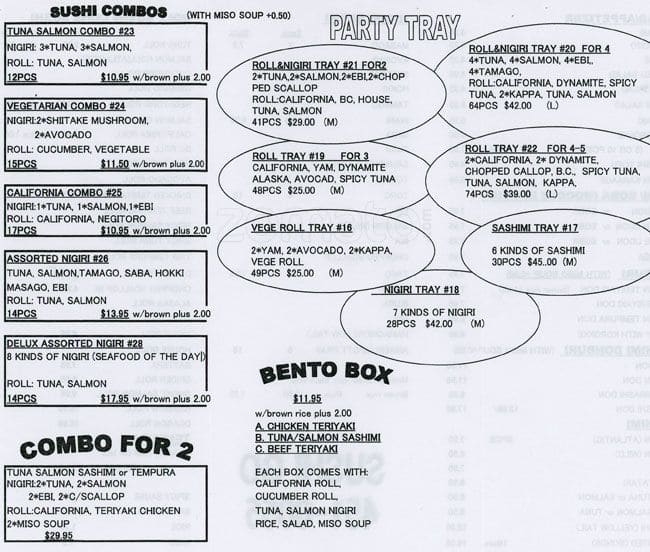 SUSHI COMBOS (WITH MISO SOUP +0.50)
TUNA SALMON COMBO #23
NIGIRI: 3*TUNA, 3*SALMON,
ROLL: TUNA, SALMON
12PCS $10.95 w/brown plus 2.00
VEGETARIAN COMBO #24
NIGIRI:2*SHIITAKE MUSHROOM,
2*AVOCADO
ROLL: CUCUMBER, VEGETABLE
15PCS $11.50 w/brown plus 2.00
CALIFORNIA COMBO #25
NIGIRI:1*TUNA, 1*SALMON,1*EBI
ROLL: CALIFORNIA, NEGITORO
17PCS $10.95 w/brown plus 2.00
ASSORTED NIGIRI #26
TUNA, SALMON,TAMAGO, SABA, HOKKI
MASAGO, EBI
ROLL: TUNA, SALMON
14PCS $13.95 w/brown plus 2.00
DELUX ASSORTED NIGIRI #28
8 KINDS OF NIGIRI (SEAFOOD OF THE DAY)
ROLL: TUNA, SALMON
14PCS $17.95 w/brown plus 2.00
COMBO FOR 2
TUNA SALMON SASHIMI or TEMPURA
NIGIRI:2*TUNA, 2*SALMON
2*EBI, 2*C/SCALLOP
ROLL:CALIFORNIA, TERIYAKI CHICKEN
2*MISO SOUP
$29.95
PARTY TRAY
ROLL&NIGIRI TRAY #21 FOR2
2*TUNA,2*SALMON,2*EBI,2*CHOP
PED SCALLOP
ROLL:CALIFORNIA, BC, HOUSE,
TUNA, SALMON
41PCS $29.00 (M)
ROLL&NIGIRI TRAY #20 FOR 4
4*TUNA, 4*SALMON, 4*EBI,
4*TAMAGO,
ROLL:CALIFORNIA, DYNAMITE, SPICY
TUNA, 2*KAPPA, TUNA, SALMON
64PCS $42.00 (L)
ROLL TRAY #19 FOR 3
CALIFORNIA, YAM, DYNAMITE
ALASKA, AVOCAD, SPICY TUNA
48PCS $25.00 (M)
ROLL TRAY #22 FOR 4-5
2*CALIFORNIA, 2* DYNAMITE,
CHOPPED CALLOP, B.C., SPICY TUNA,
TUNA, SALMON, KAPPA,
74PCS $39.00 (L)
VEGE ROLL TRAY #16
2*YAM, 2*AVOCADO, 2*KAPPA,
VEGE ROLL
49PCS $25.00 (M)
SASHIMI TRAY #17
6 KINDS OF SASHIMI
30PCS $45.00 (M)
NIGIRI TRAY #18
7 KINDS OF NIGIRI
28PCS $42.00 (M)
BENTO BOX
$11.95
w/brown rice plus 2.00
A. CHICKEN TERIYAKI
B. TUNA/SALMON SASHIMI
C. BEEF TERIYAKI
EACH BOX COMES WITH:
CALIFORNIA ROLL,
CUCUMBER ROLL,
TUNA, SALMON NIGIRI
RICE, SALAD, MISO SOUP